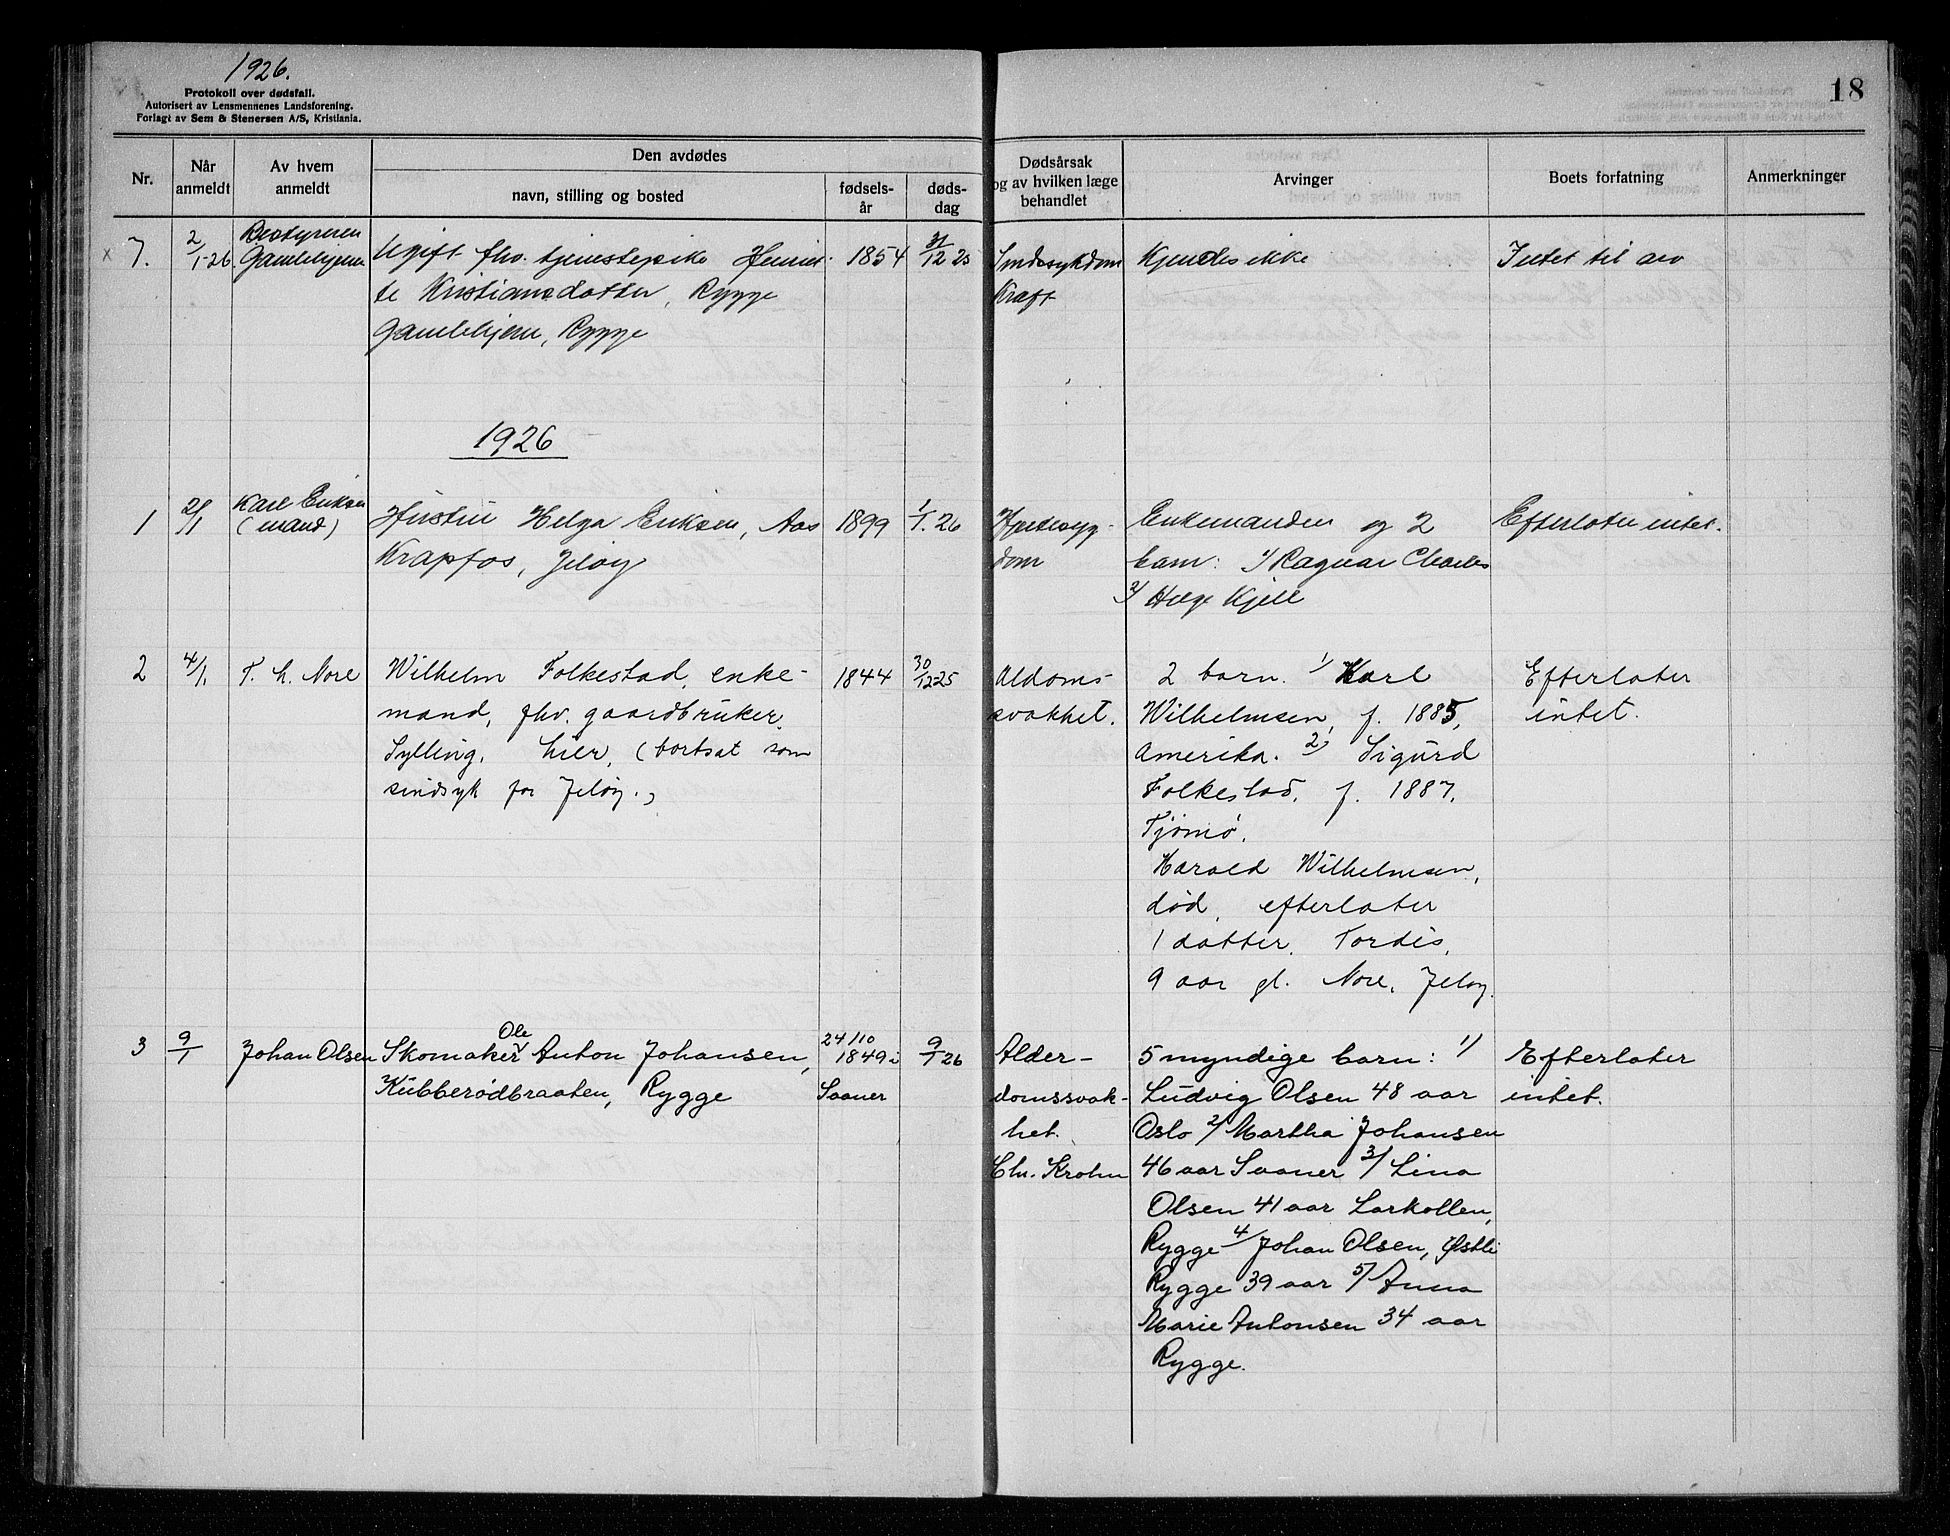 1926.
Protokoll over dødsfall.
Autorisert av Lensmennenes Landsforening.
Forlagt av Sem & Stenersen A/S, Kristiania.
18
Nr.
Når anmeldt
Av hvem anmeldt
Den avdødes
navn, stilling og bosted
fødselsår
dødsdag
Dødsårsak og av hvilken læge behandlet
Arvinger
Boets forfatning
Anmerkninger
x 7.
2/1-26.
Bestyreren
Gamlehjem
Ugift fhv. tjenestepike Henriet-
te Kristiansdatter, Rygge
Gamlehjem, Rygge
1854
31/12 25
Sindssykdom
Kraft
Kjendes ikke
Intet til arv
1926
1
2/1
Karl Eriksen
(mand)
Hustru Helga Eriksen, Aas
Krapfos, Jeløy
1899
1/1. 26
Hjertesyg-
dom
Enkemanden og 2
barn: 1/ Ragnar Charles
2/ Helge Kjell
Efterlater intet.
2
4/1.
T. H. Nore
Wilhelm Folkestad, enke-
mand, fhv. gaardbruker,
Sylling, Lier, (bortsat som
sindsyk for Jeløy.)
1844
30/12 25
Aldoms-
svakhet.
2 barn. 1/ Karl
Wilhelmsen, f. 1885,
Amerika. 2/ Sigurd
Folkestad, f. 1887,
Tjømø.
Harald Wilhelmsen,
død, efterlater
1 datter, Tordis,
9 aar gl. Nore, Jeløy.
Efterlater
intet.
3
9/1
Johan Olsen
Skomaker Ole Anton Johansen,
Kubberødbraaten, Rygge
24/10
1849 i
Saaner
9/1 26
Alder-
domssvak-
het.
Chr. Krohn
5 myndige barn: 1/
Ludvig Olsen 48 aar
Oslo 2/ Martha Johansen
46 aar Saaner 3/ Lina
Olsen 41 aar Larkollen,
Rygge 4/ Johan Olsen, Østli
Rygge 39 aar 5/ Anna
Marie Antonsen 34 aar
Rygge.
Efterlater
intet.